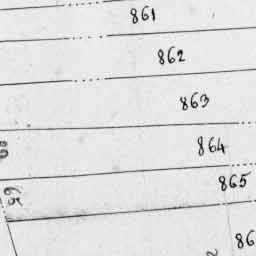 861
862
863
864
865
86